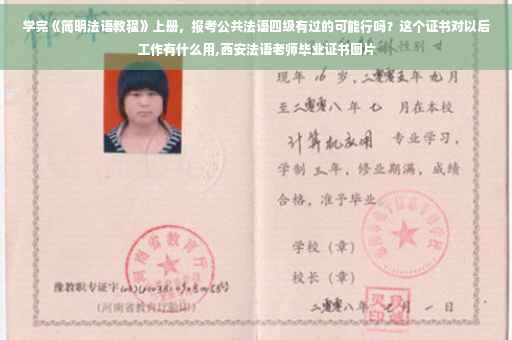 学完《简明法语教程》上册，报考公共法语四级有过的可能行吗？这个证书对以后
工作有什么用,西安法语老师毕业证书图片
性别 女
现年 16 岁，二零零五年 九月
至二零零八年 七 月在本校
计算机应用 专业学习，
学制 三年，修业期满，成绩
合格，准予毕业
学校（章）
校长（章）
河南省教育厅
豫教职专证字
（河南省教育厅验印）
二零零八年 月 一 日